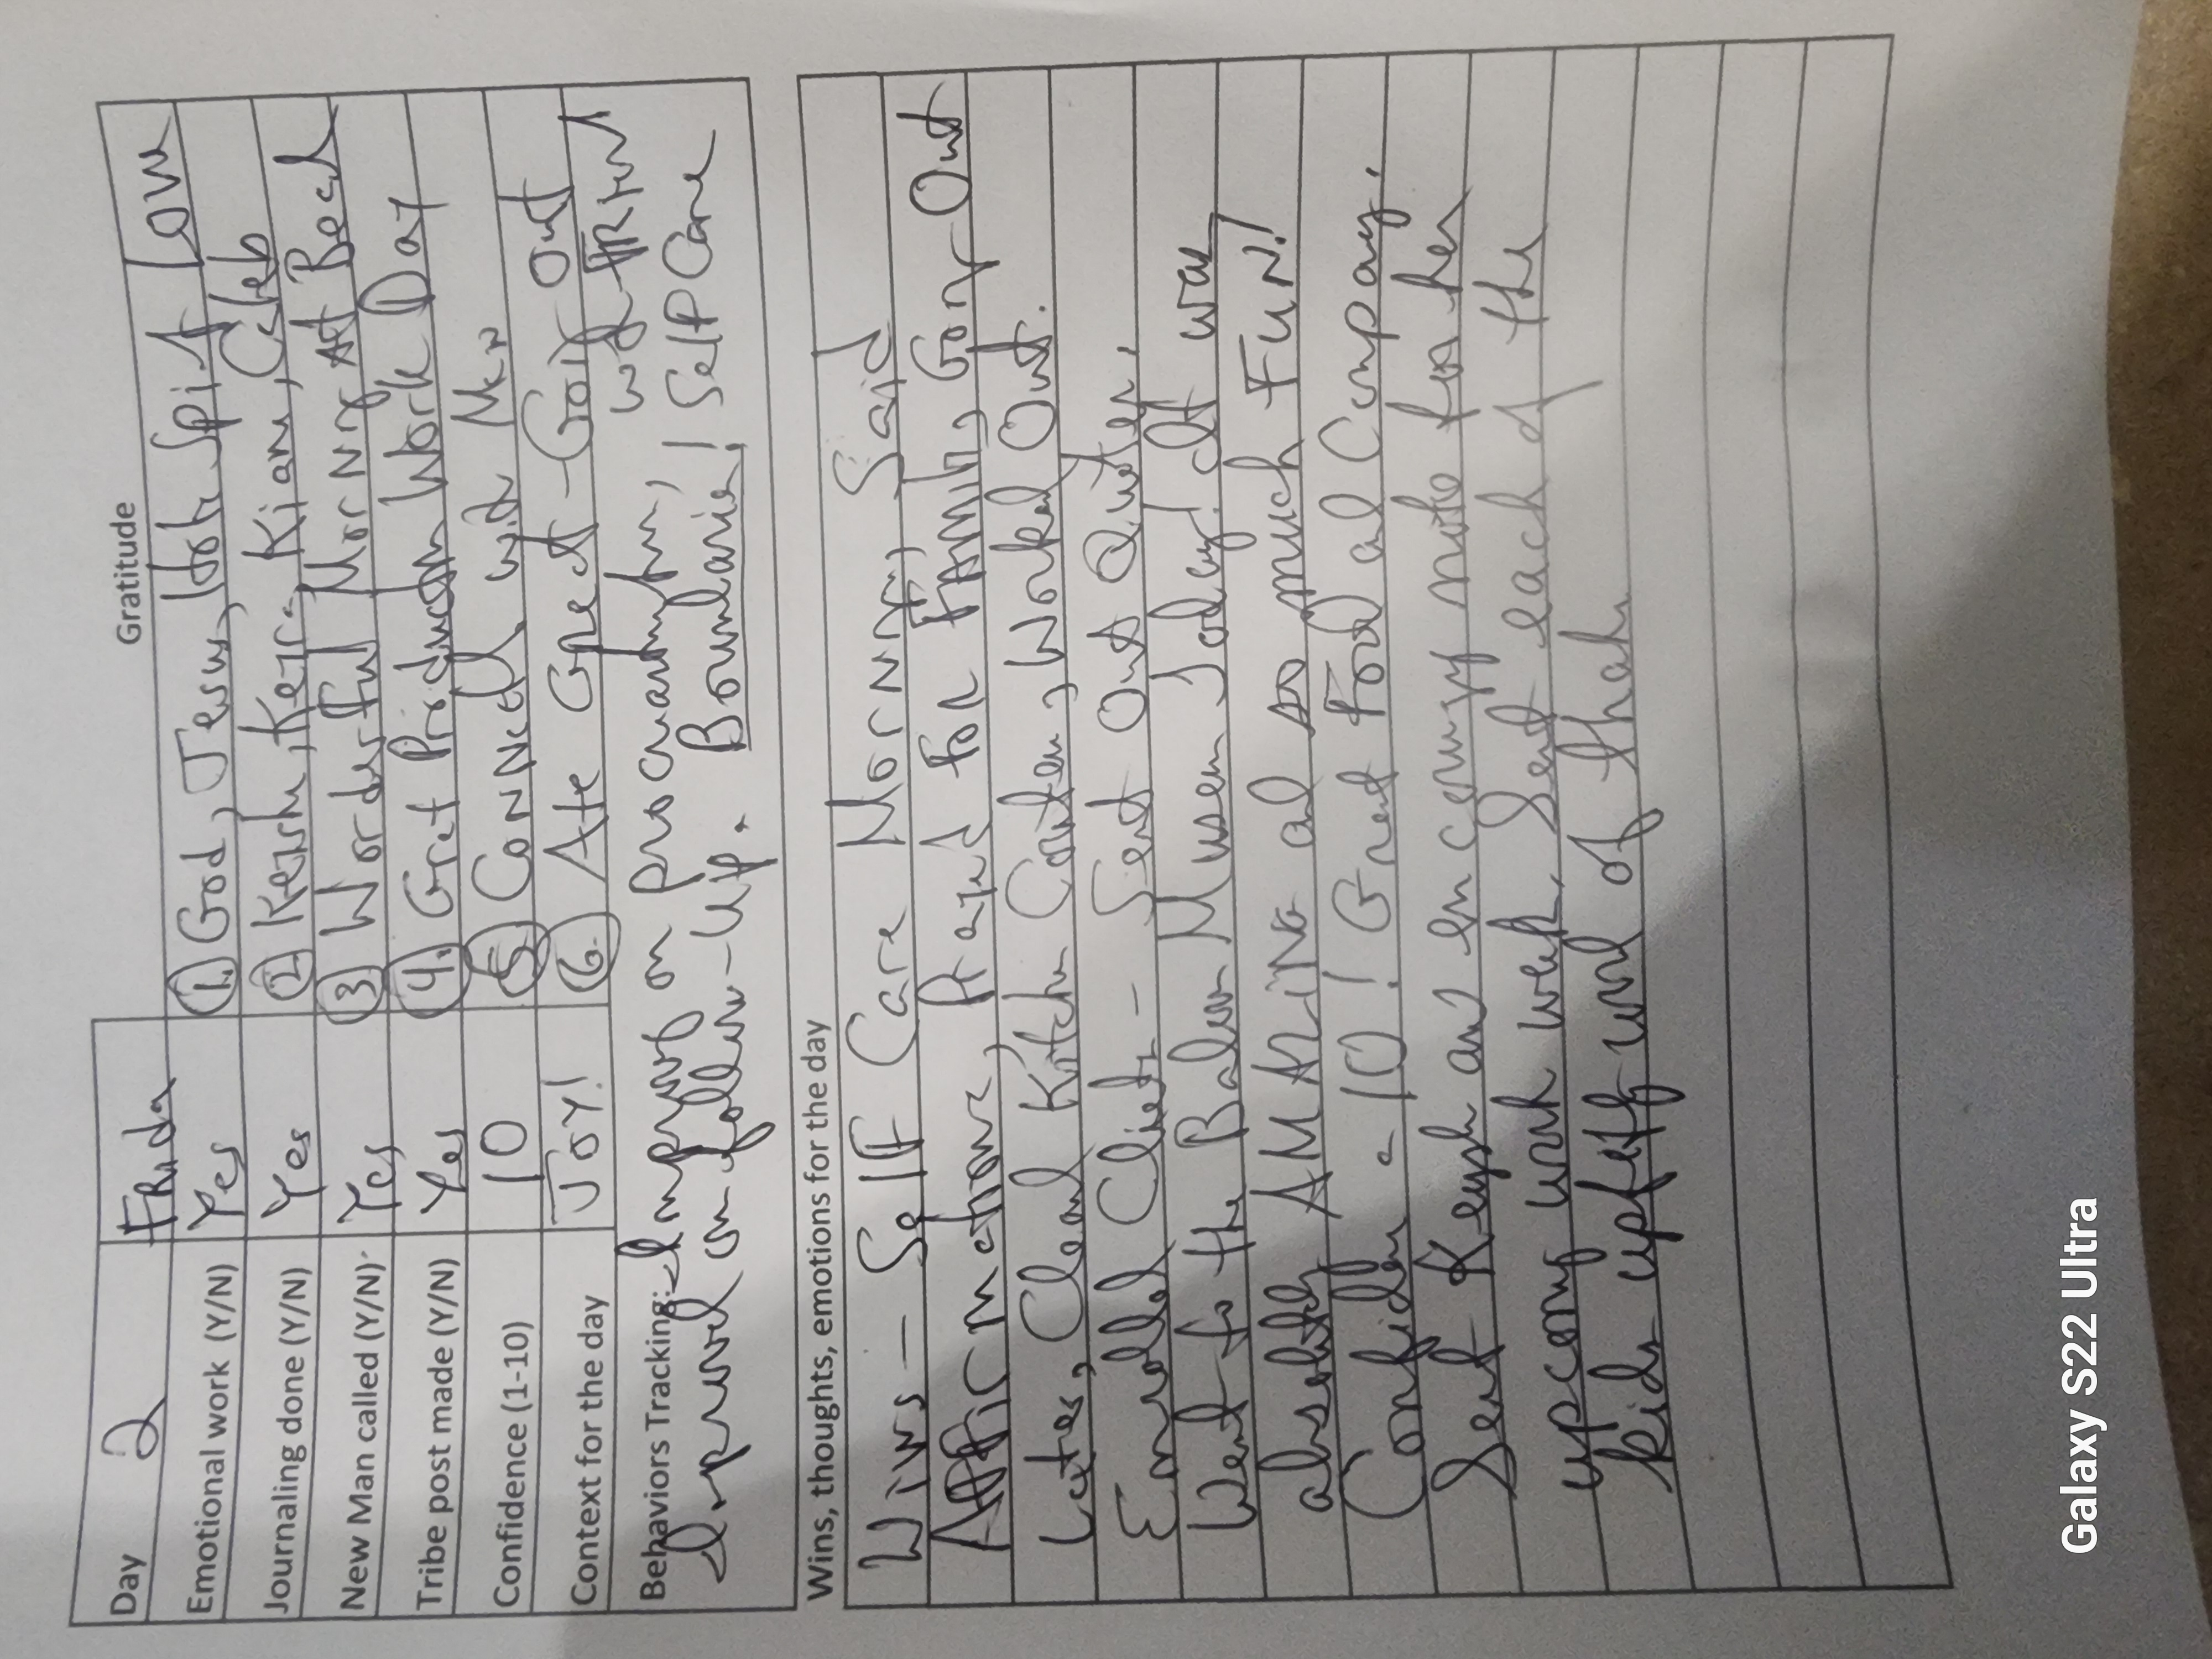 Day 2 Friday Gratitude
Emotional work (Y/N) Yes ① God, Jesus, Holy Spirit Love
Journaling done (Y/N) Yes ② Kiam, Caleb
New Man called (Y/N) Yes ③ Wonderful Morning At Beach
Tribe post made (Y/N) Yes ④ Gret Work Day
Confidence (1-10) 10 ⑤ with Men
Context for the day JOY! ⑥ Ate Great - Out
Behaviors Tracking: Improved on
Improved on follow-up. Boundaries! Self Care
Wins, thoughts, emotions for the day
Wins - Self Care Morning, Said
Affirmations, Prayed for Family, Out
Kitchen Worked Out.
Enrolled Client - Sent Out
Went to the Museum Today! It was
absolutely AMAZING and so much FUN!
Confidence - 10! Great Food and Company.
Sent an note for her
upcoming work week. Sent each of the
kids word of
Galaxy S22 Ultra